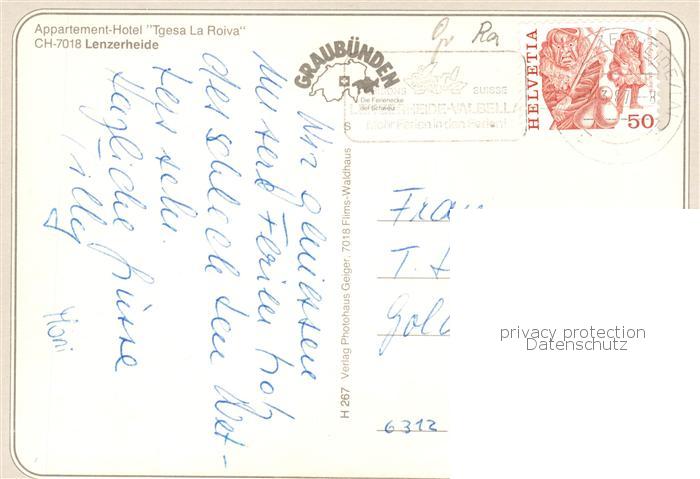 Appartement-Hotel "Tgesa La Roiva"
CH-7018 Lenzerheide
GRAUBÜNDEN
Die Ferienecke
der Schweiz
SUISSE
-VALBELLA
Mehr Ferien in den Ferien!
HELVETIA
50
Wir geniessen
unsere Ferien trotz
des schlechten Wet-
ters sehr.
Herzliche Grüsse
Willy
H 267 Verlag Photohaus Geiger, 7018 Flims-Waldhaus
Frau
T.
6312
privacy protection
Datenschutz